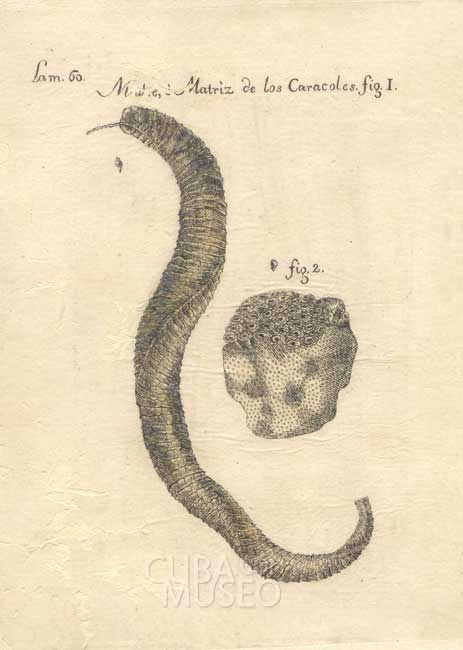 Lam. 60.
Matriz de los Caracoles. fig. I.
fig. 2.
CUBA MUSEO